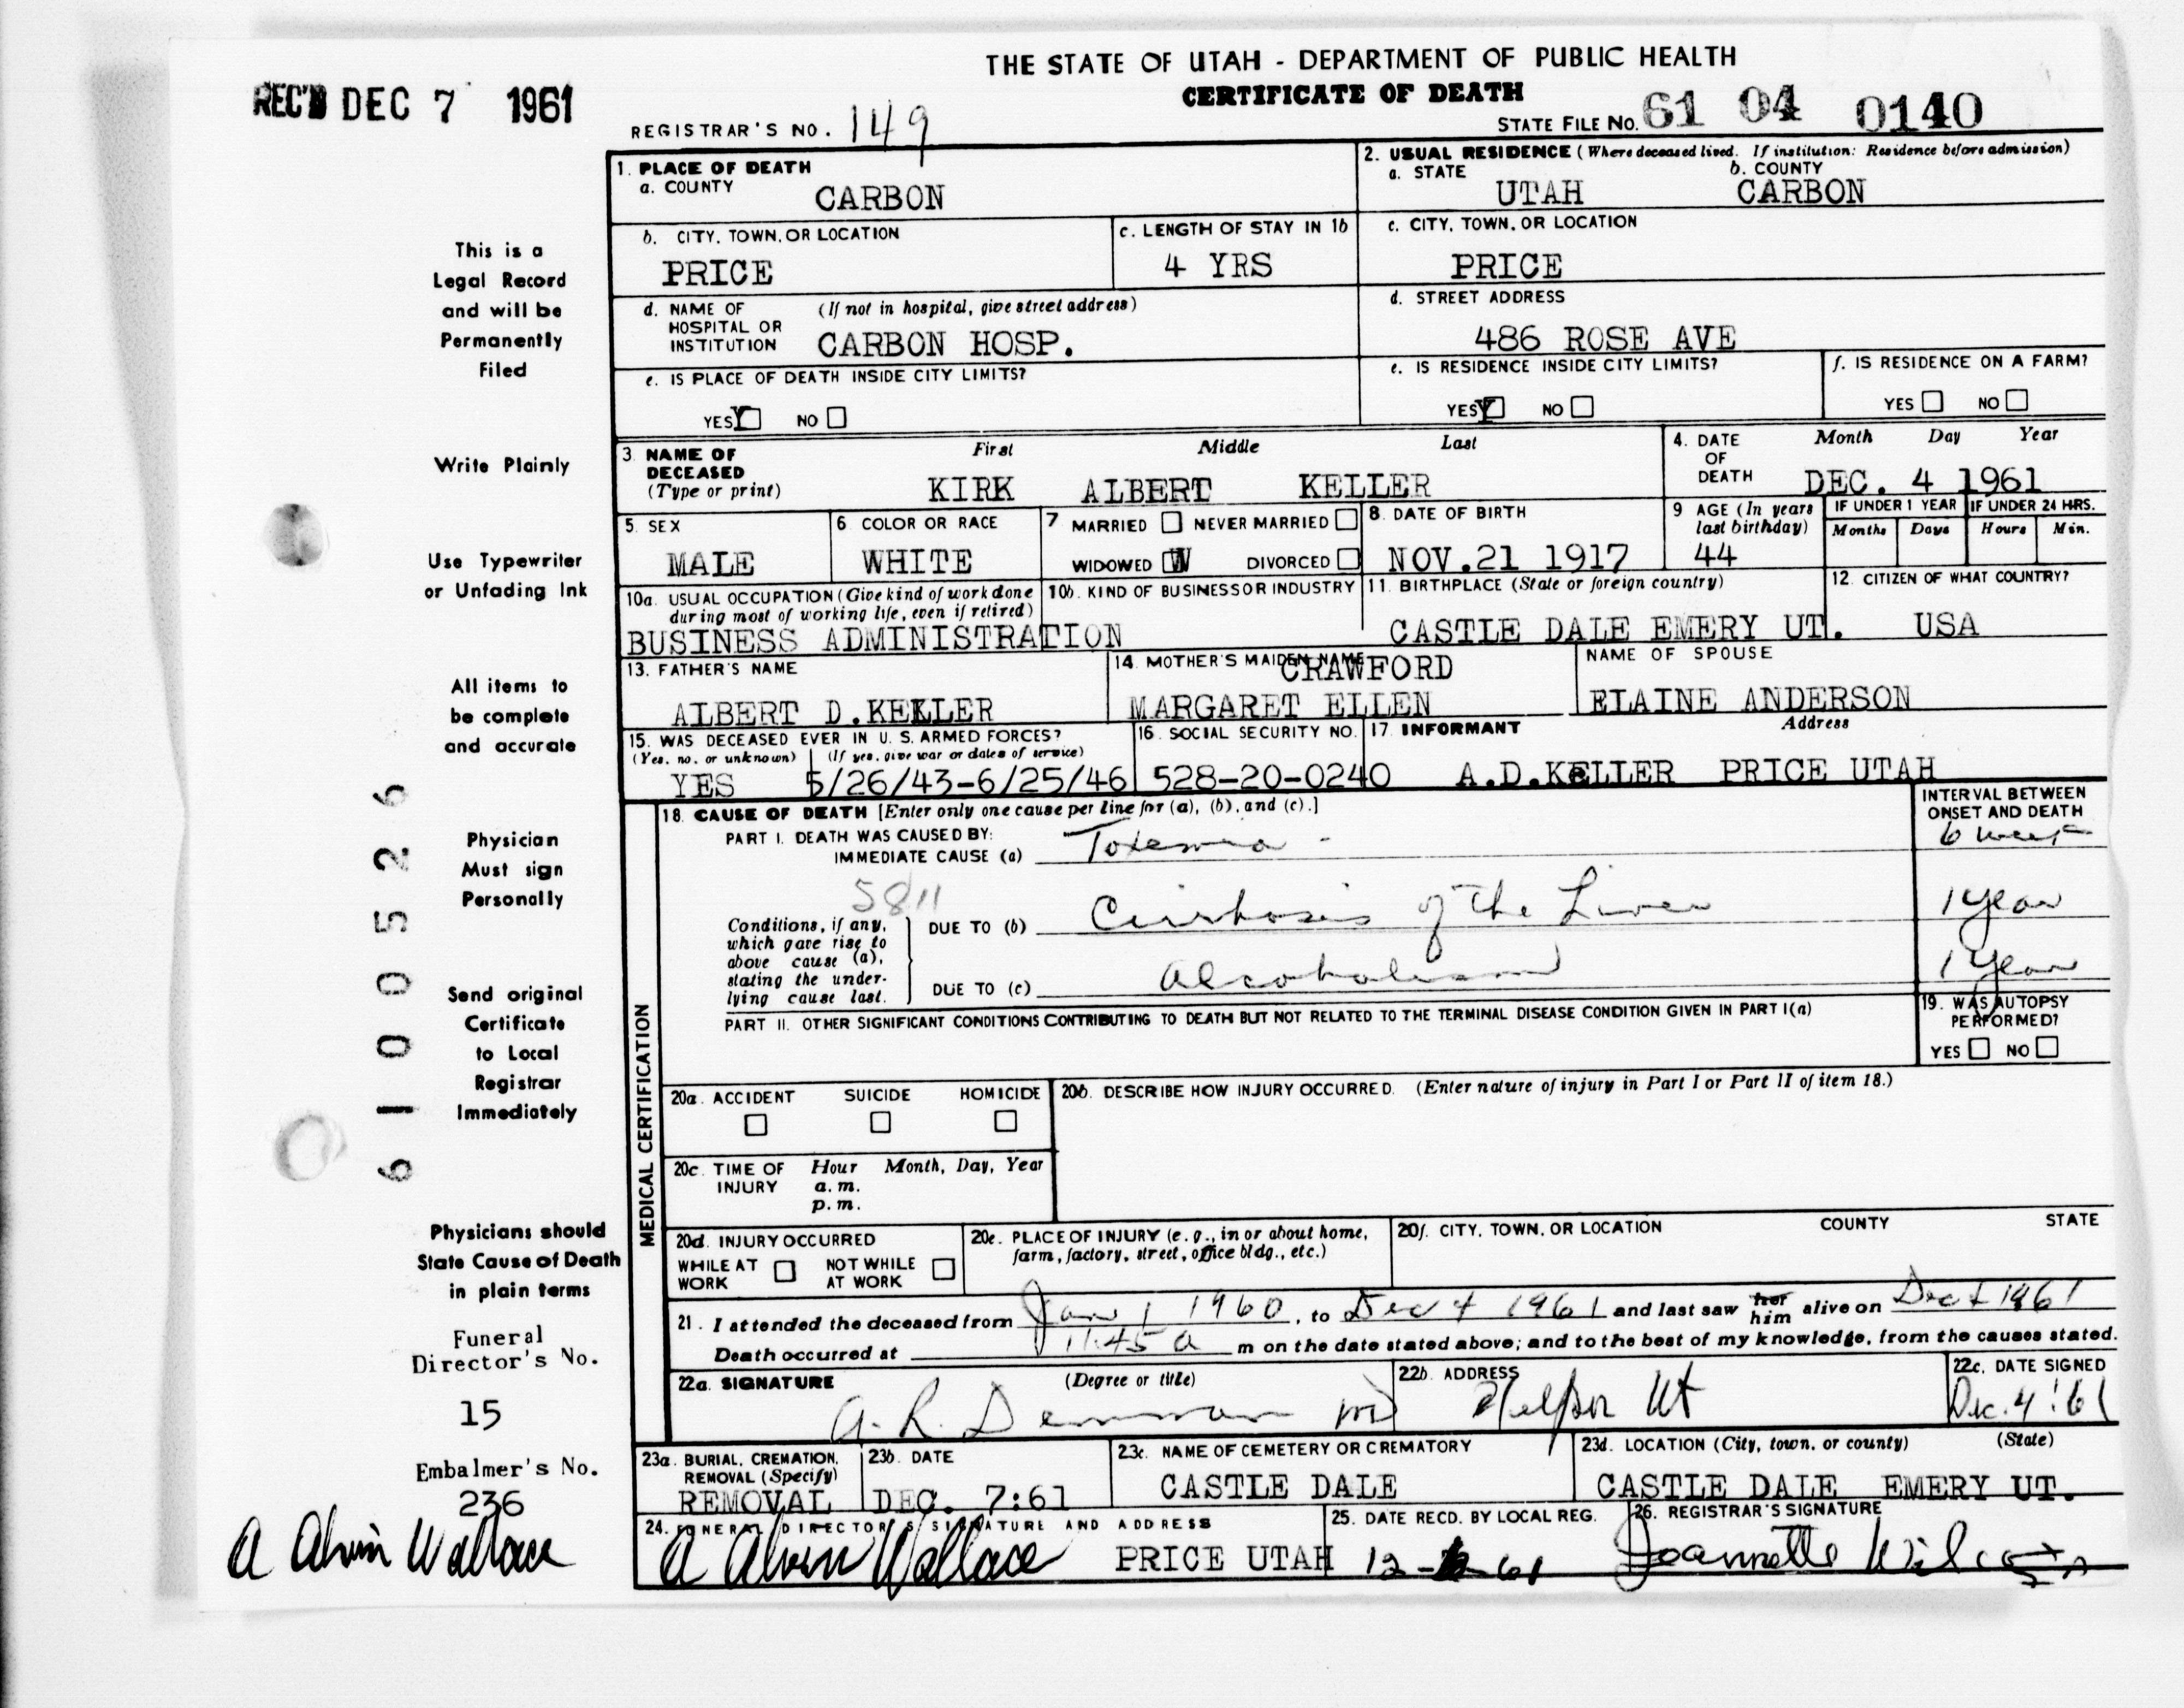 THE STATE OF UTAH - DEPARTMENT OF PUBLIC HEALTH
CERTIFICATE OF DEATH
REC'D DEC 7 1961
REGISTRAR'S NO. 149
STATE FILE NO. 61 04 0140
1. PLACE OF DEATH
a. COUNTY
CARBON
2. USUAL RESIDENCE (Where deceased lived. If institution: Residence before admission)
a. STATE b. COUNTY
UTAH CARBON
b. CITY, TOWN, OR LOCATION
PRICE
c. LENGTH OF STAY IN 1b
4 YRS
c. CITY, TOWN, OR LOCATION
PRICE
d. NAME OF (If not in hospital, give street address)
HOSPITAL OR
INSTITUTION CARBON HOSP.
d. STREET ADDRESS
486 ROSE AVE
e. IS PLACE OF DEATH INSIDE CITY LIMITS?
YES Y NO
e. IS RESIDENCE INSIDE CITY LIMITS?
YES Y NO
f. IS RESIDENCE ON A FARM?
YES NO
3. NAME OF
DECEASED
(Type or print)
First Middle Last
KIRK ALBERT KELLER
4. DATE
OF
DEATH
Month Day Year
DEC. 4 1961
5. SEX
MALE
6. COLOR OR RACE
WHITE
7 MARRIED NEVER MARRIED
WIDOWED W DIVORCED
8. DATE OF BIRTH
NOV.21 1917
9 AGE (In years
last birthday)
44
IF UNDER 1 YEAR
Months Days
IF UNDER 24 HRS.
Hours Min.
10a. USUAL OCCUPATION (Give kind of work done
during most of working life, even if retired)
BUSINESS ADMINISTRATION
10b. KIND OF BUSINESS OR INDUSTRY
11. BIRTHPLACE (State or foreign country)
CASTLE DALE EMERY UT.
12. CITIZEN OF WHAT COUNTRY?
USA
13. FATHER'S NAME
ALBERT D.KELLER
14. MOTHER'S MAIDEN NAME
CRAWFORD
MARGARET ELLEN
NAME OF SPOUSE
ELAINE ANDERSON
15. WAS DECEASED EVER IN U. S. ARMED FORCES?
(Yes, no, or unknown) (If yes, give war or dates of service)
YES 5/26/43-6/25/46
16. SOCIAL SECURITY NO.
528-20-0240
17. INFORMANT Address
A.D.KELLER PRICE UTAH
MEDICAL CERTIFICATION
18. CAUSE OF DEATH [Enter only one cause per line for (a), (b), and (c).]
INTERVAL BETWEEN
ONSET AND DEATH
PART I. DEATH WAS CAUSED BY:
IMMEDIATE CAUSE (a) Toxemia -
6 week
5811
Conditions, if any,
which gave rise to
above cause (a),
stating the under-
lying cause last.
DUE TO (b) Cirrhosis of the Liver
1 year
DUE TO (c) Alcoholism
1 year
PART II. OTHER SIGNIFICANT CONDITIONS CONTRIBUTING TO DEATH BUT NOT RELATED TO THE TERMINAL DISEASE CONDITION GIVEN IN PART I(a)
19. WAS AUTOPSY
PERFORMED?
YES NO
20a. ACCIDENT SUICIDE HOMICIDE
20b. DESCRIBE HOW INJURY OCCURRED. (Enter nature of injury in Part I or Part II of item 18.)
20c. TIME OF Hour Month, Day, Year
INJURY a. m.
p. m.
20d. INJURY OCCURRED
WHILE AT WORK NOT WHILE AT WORK
20e. PLACE OF INJURY (e. g., in or about home,
farm, factory, street, office bldg., etc.)
20f. CITY, TOWN, OR LOCATION COUNTY STATE
21. I attended the deceased from Jan 1 1960, to Dec 4 1961 and last saw her him alive on Dec 4 1961
Death occurred at 11:45 a m on the date stated above; and to the best of my knowledge, from the causes stated.
22a. SIGNATURE (Degree or title)
A. R. Demman MD
22b. ADDRESS
Helper Ut
22c. DATE SIGNED
Dec. 4 '61
23a. BURIAL, CREMATION,
REMOVAL (Specify)
REMOVAL
23b. DATE
DEC. 7:61
23c. NAME OF CEMETERY OR CREMATORY
CASTLE DALE
23d. LOCATION (City, town, or county) (State)
CASTLE DALE EMERY UT.
24. FUNERAL DIRECTOR'S SIGNATURE AND ADDRESS
A Alvin Wallace PRICE UTAH
25. DATE RECD. BY LOCAL REG.
26. REGISTRAR'S SIGNATURE
Joannette Wilcox
This is a
Legal Record
and will be
Permanently
Filed
Write Plainly
Use Typewriter
or Unfading Ink
All items to
be complete
and accurate
Physician
Must sign
Personally
Send original
Certificate
to Local
Registrar
Immediately
Physicians should
State Cause of Death
in plain terms
Funeral
Director's No.
15
Embalmer's No.
236
A Alvin Wallace
6100526